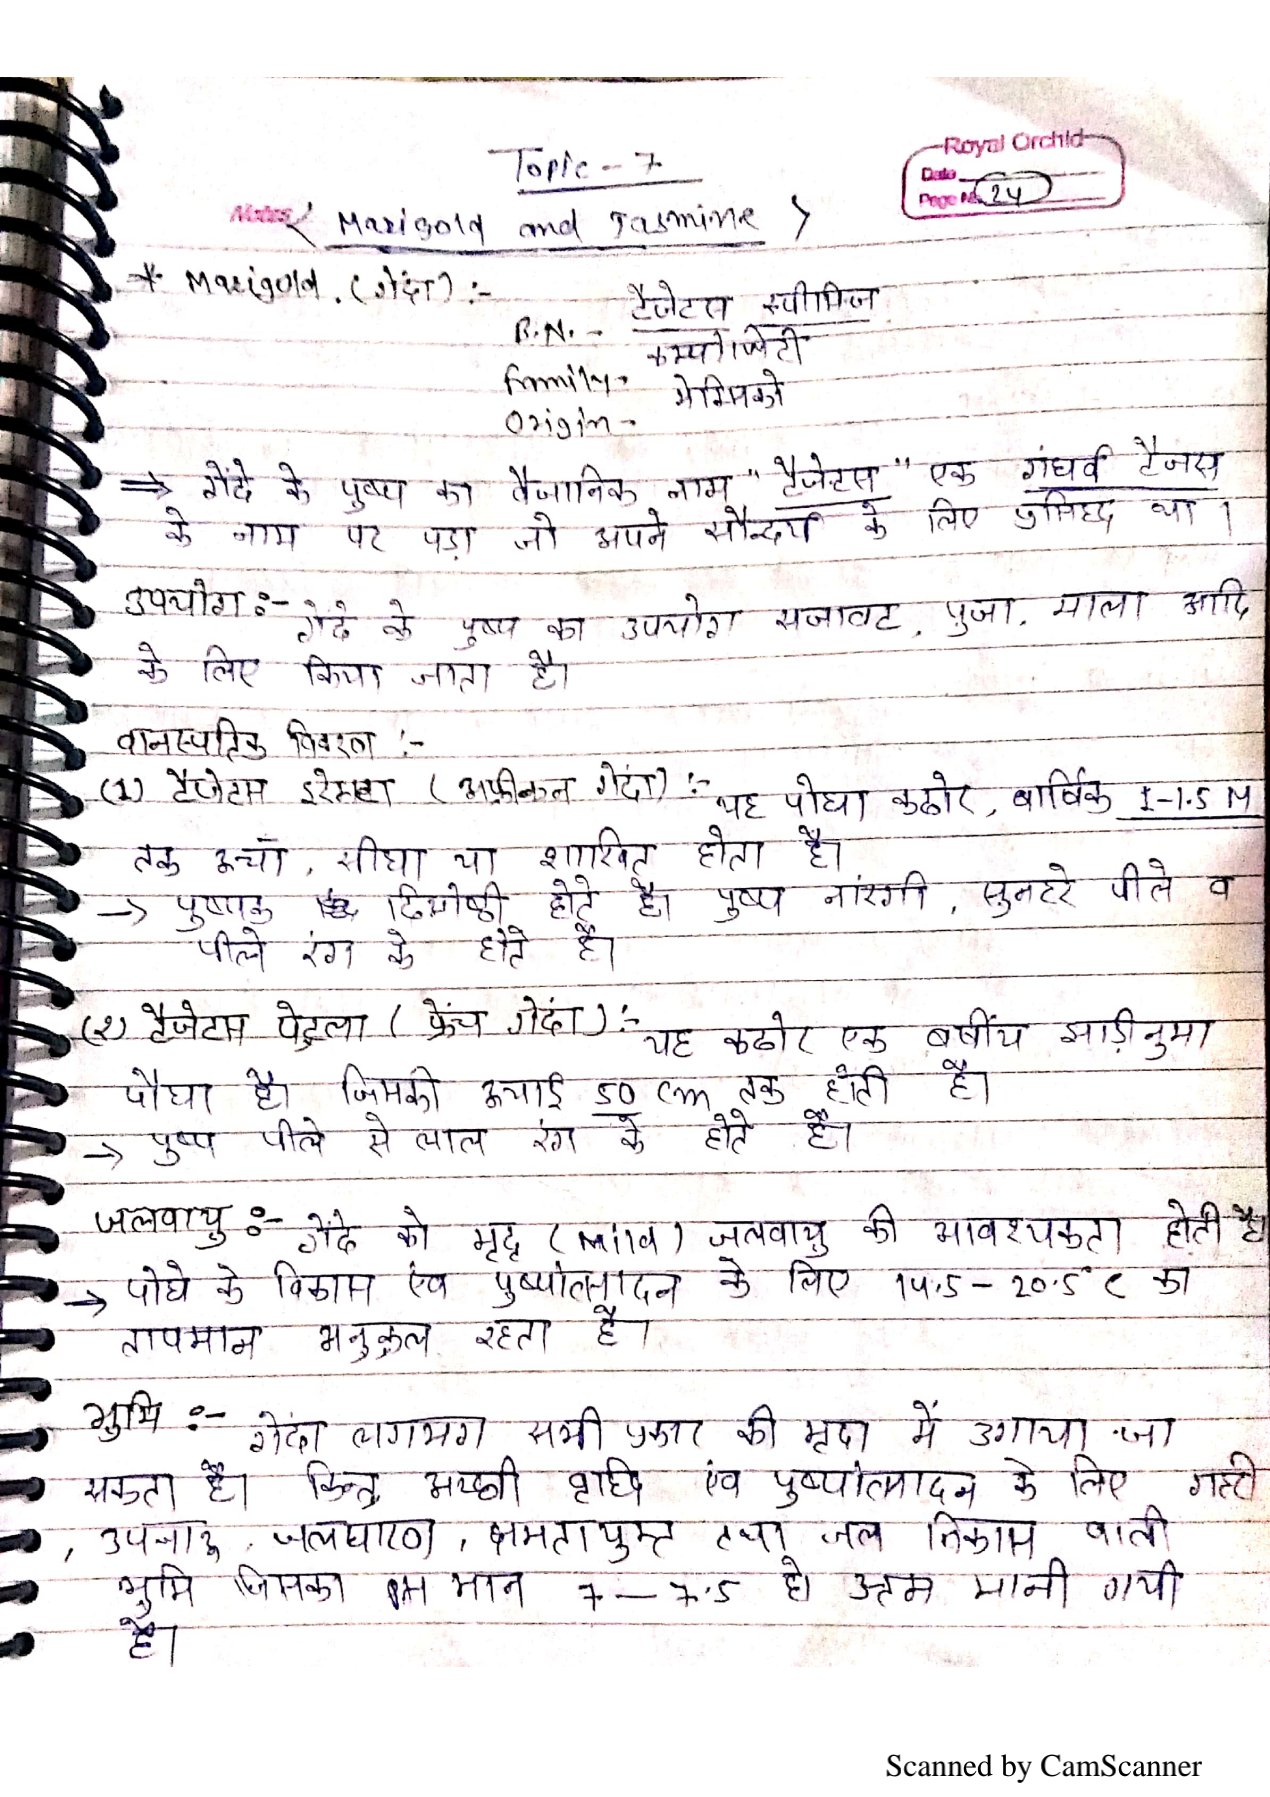 Topic - 7
Royal Orchid
Date
Page No. 24
Notes < Marigold and Jasmine >
* Marigold. (गेंदा) :-
B.N. - टैजेटस स्पीसिज
Family - कम्पोजिटी
Origin - मेक्सिको
⇒ गेंदे के पुष्प का वैज्ञानिक नाम "टैजेटस" एक गंधर्व टैजस
के नाम पर पड़ा जो अपने सौन्दर्य के लिए प्रसिध्द था।
उपयोग :- गेंदे के पुष्प का उपयोग सजावट, पुजा, माला आदि
के लिए किया जाता है।
वानस्पतिक विवरण :-
(1) टैजेटस इरेक्टा (अफ्रीकन गेदां) :- यह पौधा कठोर, वार्षिक 1-1.5 M
तक ऊचाँ, सीधा या शाखित होता है।
→ पुष्पक होते है। पुष्प नांरगी, सुनहरे पीले व
पीले रंग के होते है।
(२) टैजेटस पेटुला (फ्रेंच गेदां) :- यह कठोर एक वर्षीय झाड़ीनुमा
पौधा है। जिसकी ऊचाई 50 cm तक होती है।
→ पुष्प पीले से लाल रंग के होते है।
जलवायु :- गेंदे को मृदु (Mild) जलवायु की आवश्यकता होती है।
→ पोधे के विकास एंव पुष्पोत्पादन के लिए 14.5 - 20.5°C का
तापमान अनुकुल रहता है।
भुमि :- गेदां लगभग सभी प्रकार की मृदा में उगाया जा
सकता है। किन्तु अच्छी वृध्दि एंव पुष्पोत्पादन के लिए गहरी
, उपजाऊ, जलधारण, क्षमतायुक्त तथा जल निकास वाली
भुमि जिसका मान 7 - 7.5 है। उत्तम मानी गयी
है।
Scanned by CamScanner